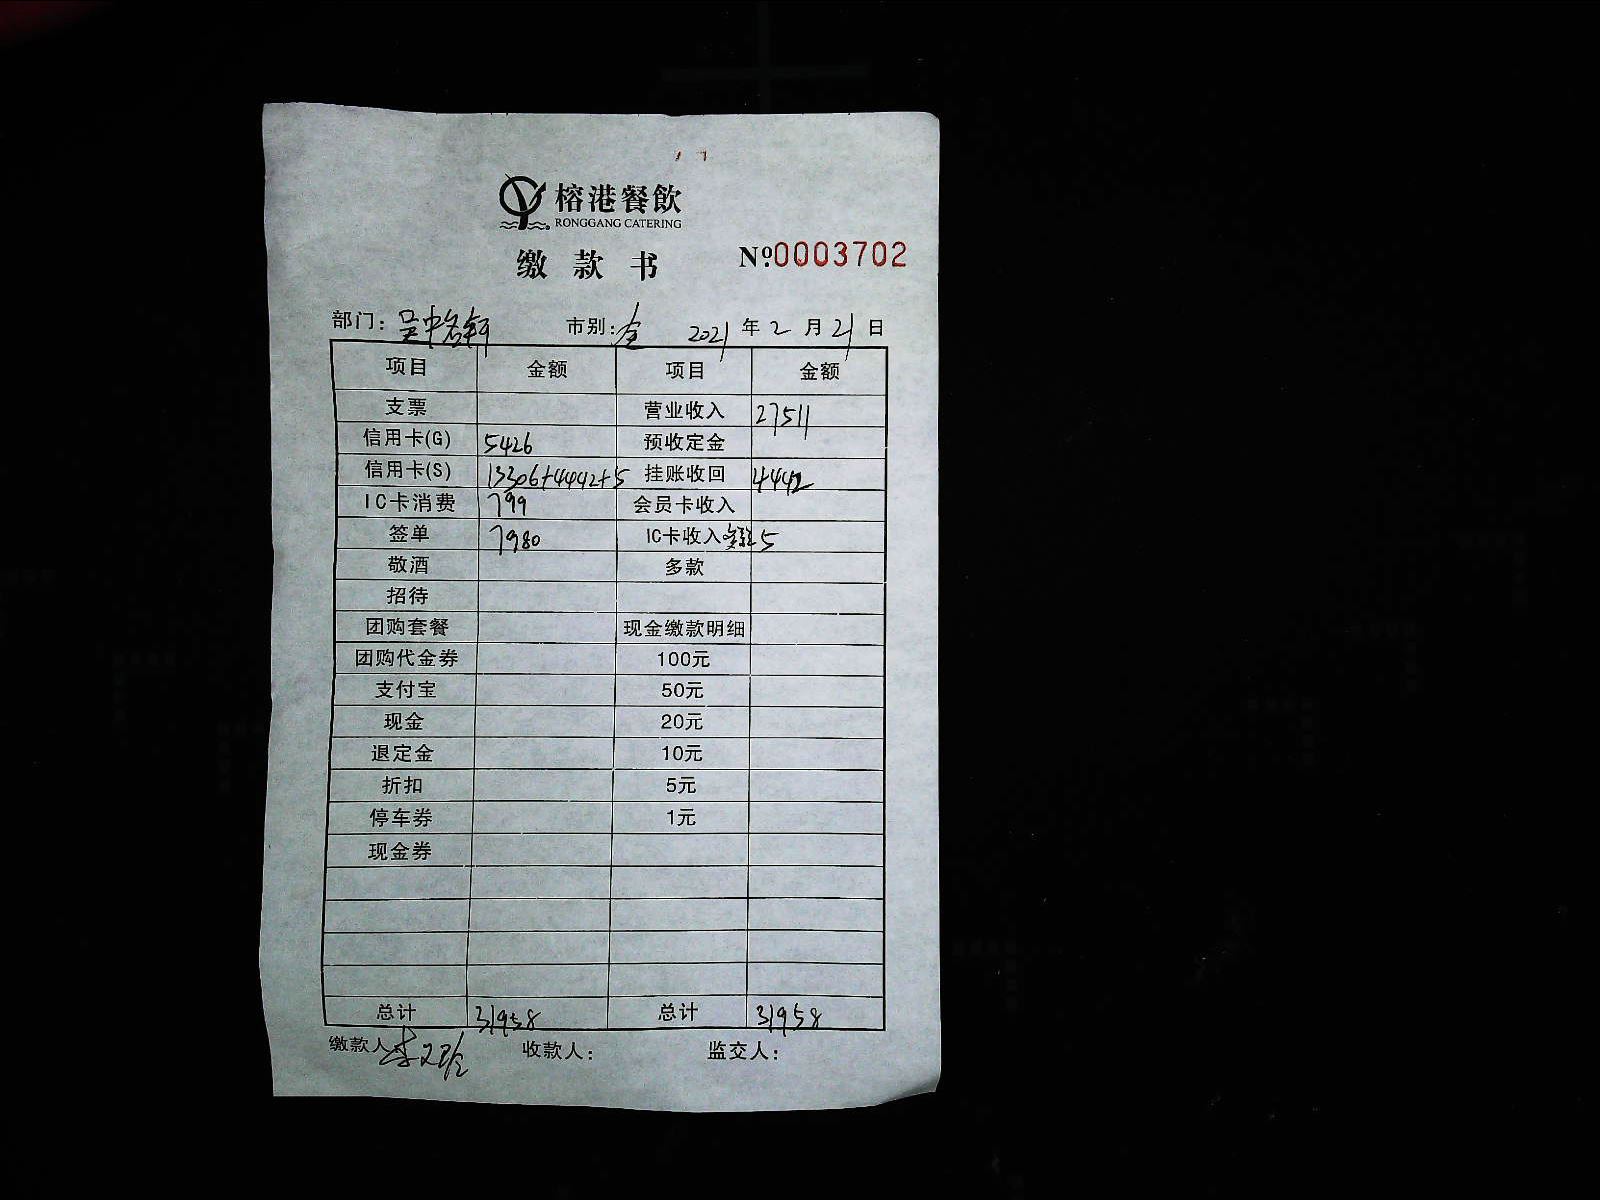 榕港餐飲
RONGGANG CATERING
缴款书 Nº0003702
部门：吴中名轩 市别：全 2021年2月21日
项目 金额 项目 金额
支票 营业收入 27511
信用卡(G) 5426 预收定金
信用卡(S) 13306+4442+5 挂账收回 4442
IC卡消费 799 会员卡收入
签单 7980 IC卡收入 5
敬酒 多款
招待
团购套餐 现金缴款明细
团购代金券 100元
支付宝 50元
现金 20元
退定金 10元
折扣 5元
停车券 1元
现金券
总计 31958 总计 31958
缴款人 收款人： 监交人：